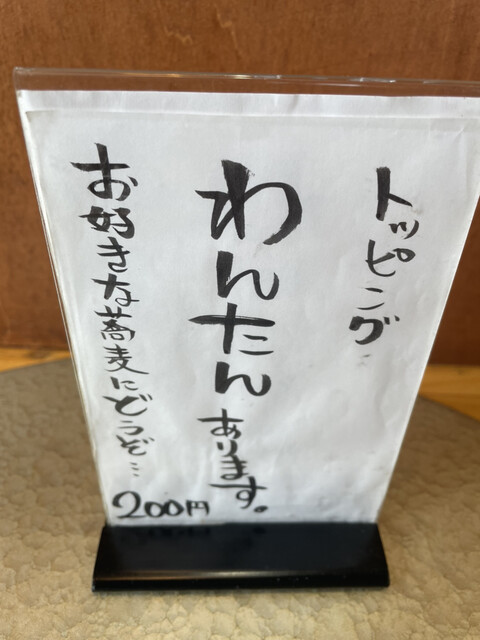 トッピング
わんたんあります。
お好きな蕎麦にどうぞ…
200円